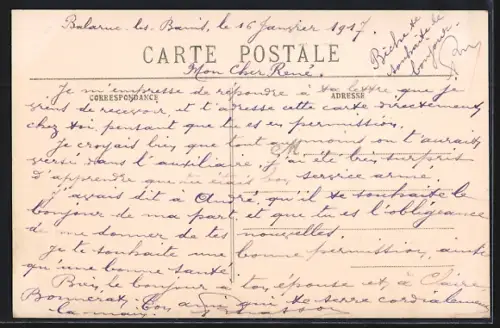 Balaruc-les-Bains, le 16 Janvier 1917.
CARTE POSTALE
Mon Cher René,
CORRESPONDANCE
ADRESSE
Je m'empresse de répondre à ta lettre que je
viens de recevoir, et t'adresse cette carte directement
chez toi, pensant que tu es en permission.
Je croyais bien que tout au moins on t'aurait
versé dans l'auxiliaire, j'ai été bien surpris
d'apprendre que tu étais bon service armé.
J'avais dit à André, qu'il te souhaite le
bonjour de ma part, et que tu es l'obligeance
de me donner de tes nouvelles.
Je te souhaite une bonne permission, ainsi
qu'une bonne santé.
Bien le bonjour à ton épouse et, à
Bonnerat, Ton ami qui te serre cordialement
la main.
souhaite le
bonjour.